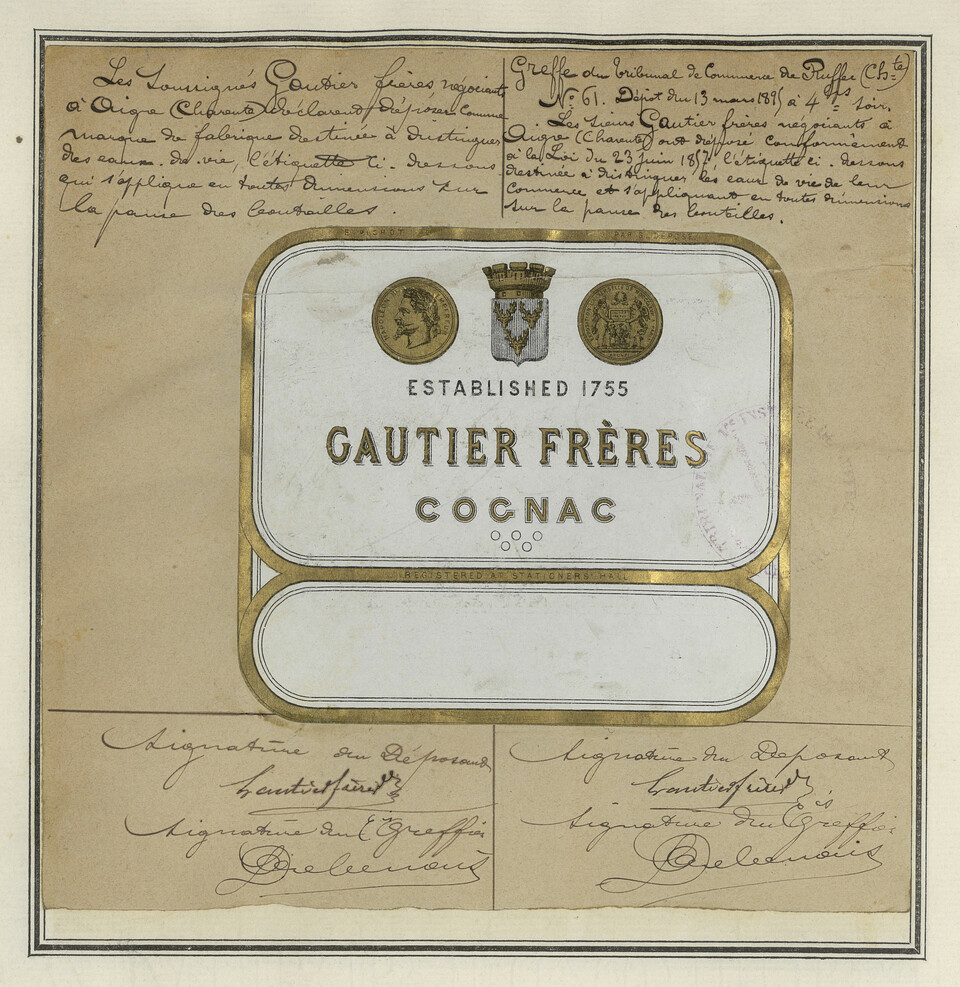 Les Soussignés Gautier frères, négociants
à Aigre (Charente) déclarent déposer comme
marque de fabrique destinée à distinguer
des eaux-de-vie, l'étiquette ci-dessous
qui s'applique en toutes dimensions sur
la panse des bouteilles.
Greffe du Tribunal de Commerce de Ruffec (Chte)
N° 61. Dépôt du 13 mars 1895 à 4 hrs soir.
Les Sieurs Gautier frères négociants à
Aigre (Charente) ont déposé conformément
à la Loi du 23 Juin 1857 l'étiquette ci-dessous
destinée à distinguer les eaux de vie de leur
commerce et s'appliquant en toutes dimensions
sur la panse des bouteilles.
NAPOLEON III EMPEREUR
ESTABLISHED 1755
GAUTIER FRÈRES
COGNAC
REGISTERED AT STATIONERS' HALL
Signature du Déposant
Gautier frères
Signature du Greffier
Signature du Déposant
Gautier frères
Signature du Greffier